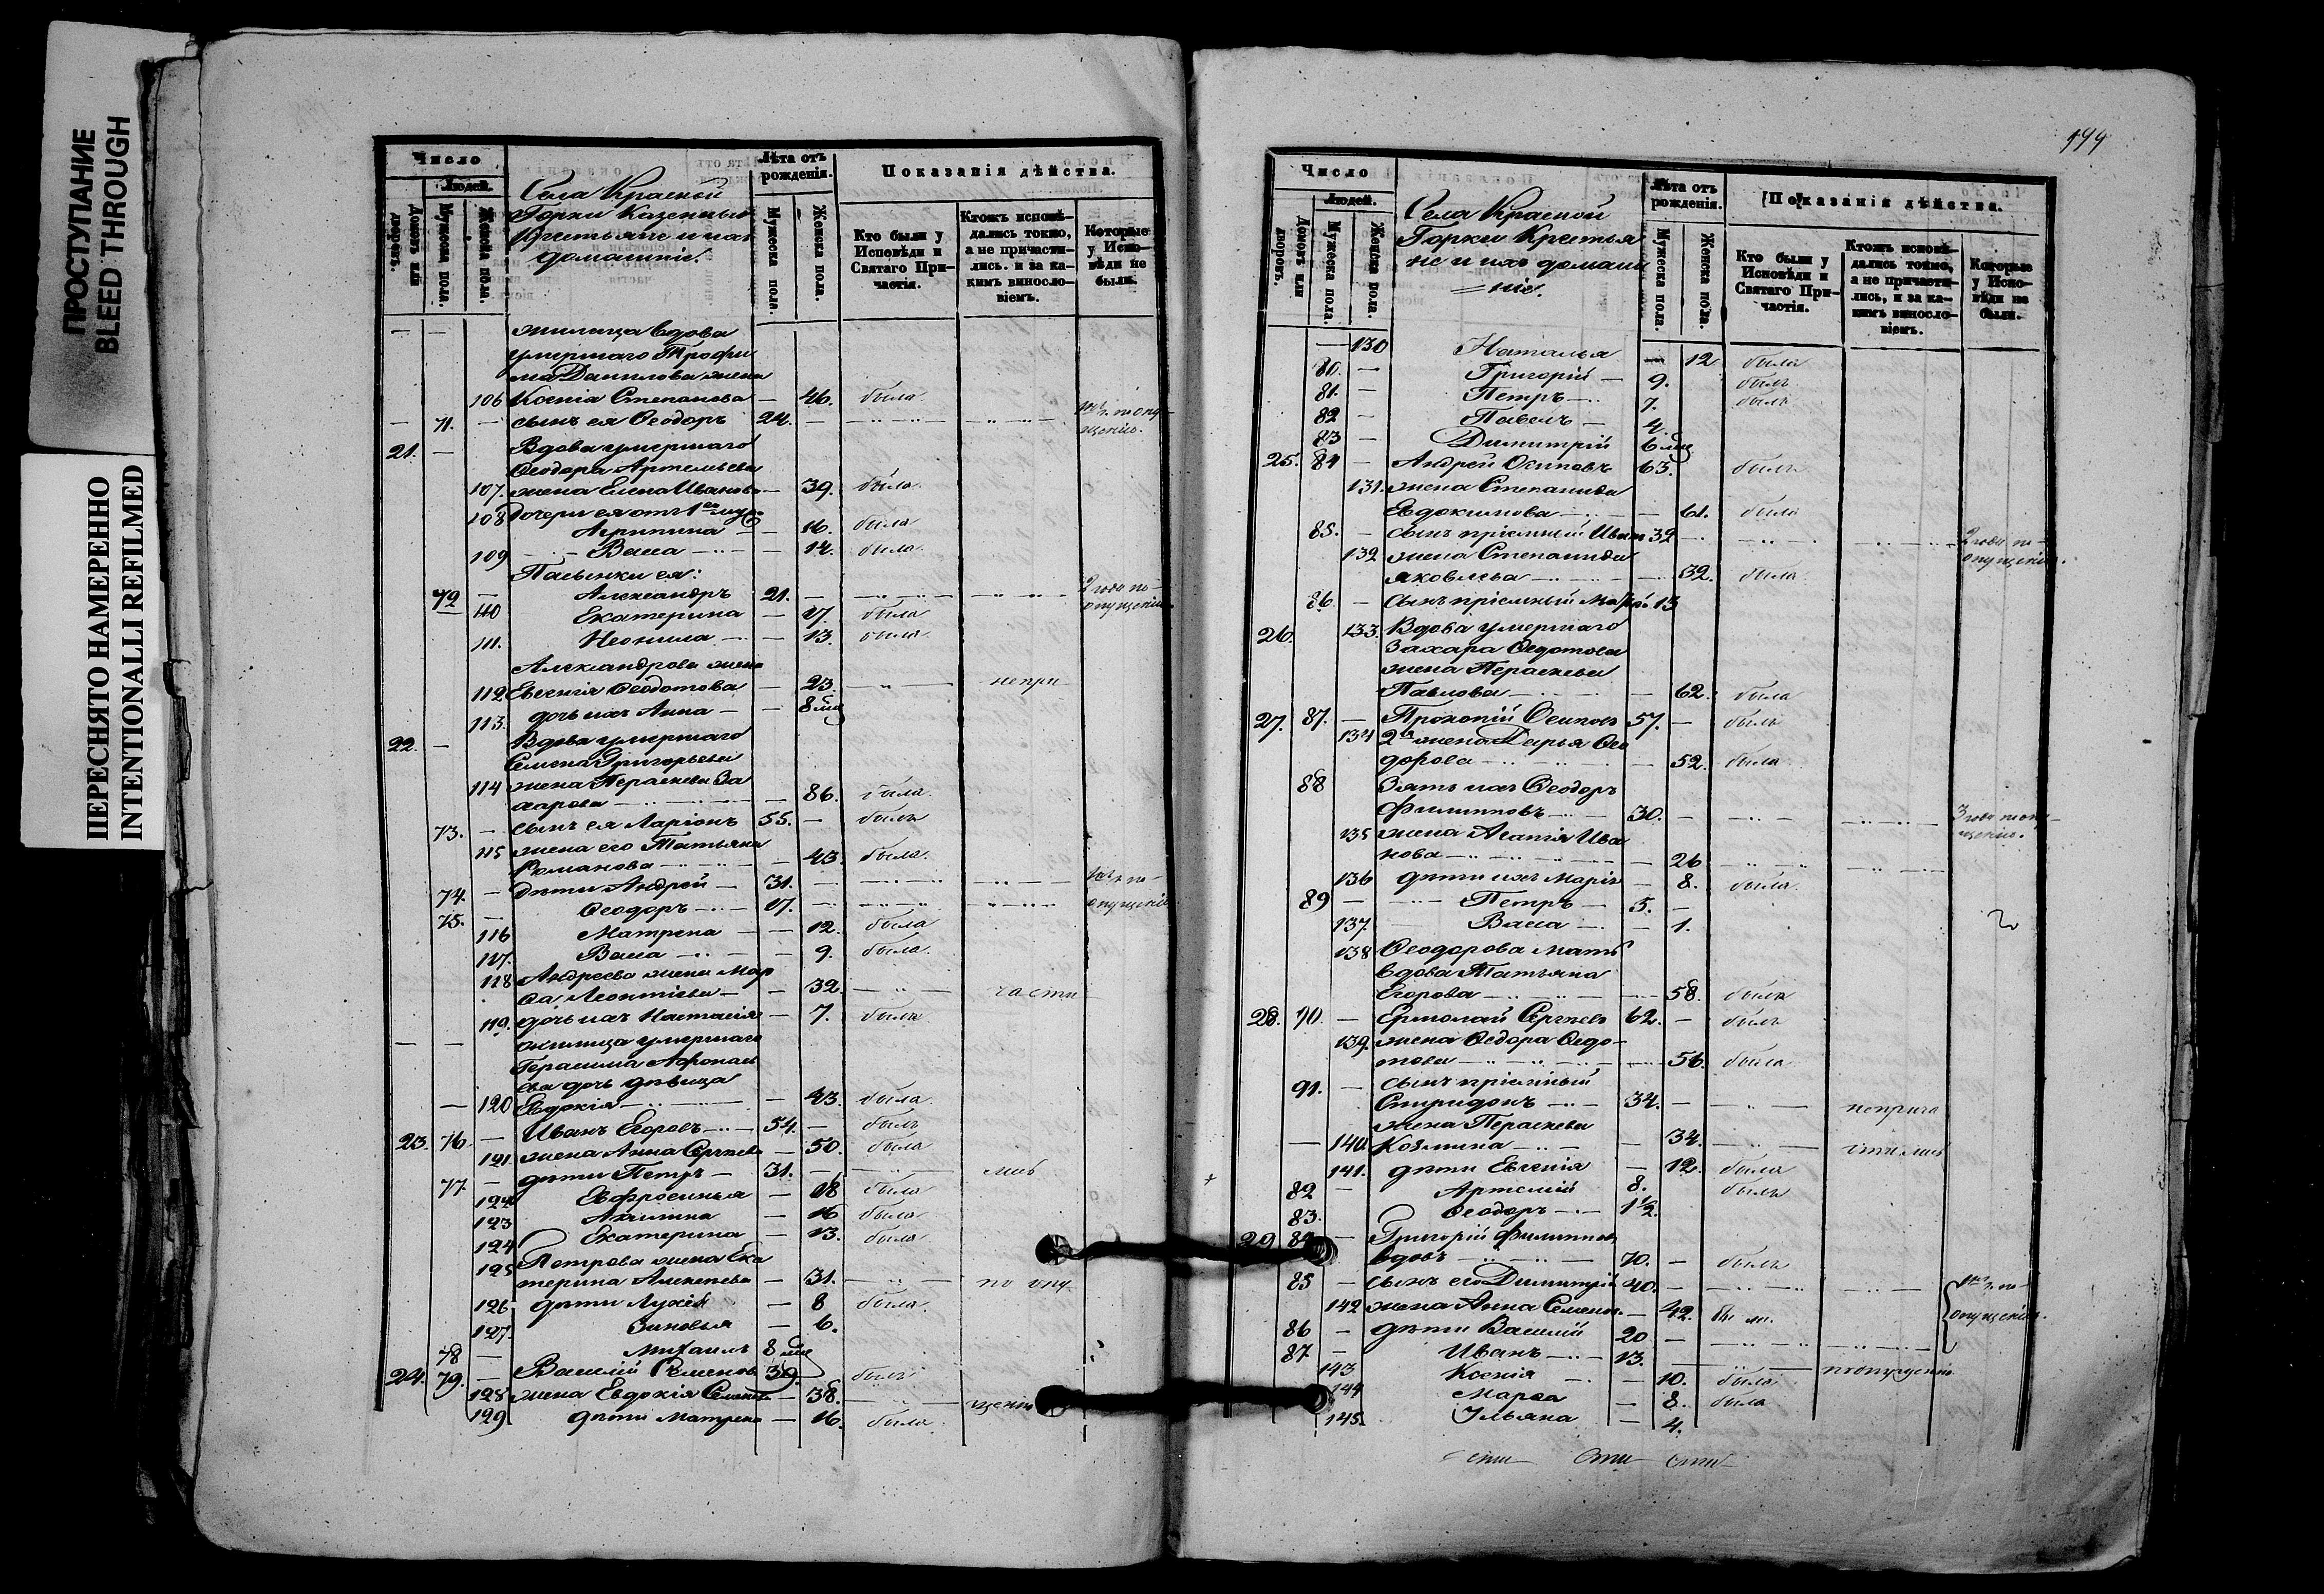 ПРОСТУПАНИЕ
BLEED THROUGH
ПЕРЕСНЯТО НАМЕРЕННО
INTENTIONALLI REFILMED
Число
Людей.
Домовъ или дворовъ.
Мужеска пола.
Женска пола.
Села Красной
Горки Казенные
Крестьяне и ихъ
домашніе.
Лѣта отъ рожденія.
Мужеска пола.
Женска пола.
Показанія дѣйства.
Кто были у Исповѣди и Святаго Причастія.
Ктожъ исповѣдались токмо, а не причастились. и за какимъ винословіемъ.
Которые у Исповѣди не были.
— — жилица вдова
умершаго Трофи
ма Данилова жена
106 Ксенія Степанова — 46. была
— 71. — сынъ ея Ѳеодоръ 24. —
21. — Вдова умершаго
Ѳеодора Артемьева
107. жена Елена Иванова — 39. была
108 Дочери ея отъ 1го мужа
Агрипина — 16. была
109 Васса — 14. была
Пасынки ея:
72 — Александръ 21. — 2 года по опущенію
110 Екатерина — 17. была
111. Неонила — 13. была
Александрова жена
112 Евгенія Ѳеодотова — 23. непри
113. дочь ихъ Анна — 8 мц
22. — Вдова умершаго
Семена Григорьева
114 жена Пераскева За
харова — 86. была
73. — сынъ ея Ларіонъ 55. — былъ
115 жена его Татьяна
Романова — 43. была.
74. — дѣти Андрей — 31. —
75. — Ѳеодоръ — 17. — опущенію
116 Матрена — 12. была
117. Васса — 9. была.
118 Андреева жена Мар
ѳа Леонтіева — 32. части
119. дочь ихъ Настасія — 7. была
— — жилица умершаго
Герасима Аѳонась
ева дочь дѣвица
— 120 Евдокія — 43. была.
23. 76. — Иванъ Егоровъ — 54. — былъ
121. жена Анна Сергѣева — 50. была
77 — дѣти Петръ — 31. — лись
122 Евфросинья — 18 была
123 Акилина — 16 была
124 Екатерина — 13. была
125 Петрова жена Ека
терина Алексѣева — 31. по опу
126 дѣти Лукія — 8 была.
127. Зиновья — 6.
78 — Михаилъ 8 мц
24. 79. — Василій Семеновъ 39. былъ
128 жена Евдокія Семенова — 38. щенію
129. дѣти Матрена — 16. была.
144
Число
Людей.
Домовъ или дворовъ.
Мужеска пола.
Женска пола.
Села Красной
Горки Крестья
не и ихъ домаш
=ніе.
Лѣта отъ рожденія.
Мужеска пола.
Женска пола.
Показанія дѣйства.
Кто были у Исповѣди и Святаго Причастія.
Ктожъ исповѣдались токмо, а не причастились, и за какимъ винословіемъ.
Которые у Исповѣди не были.
— 130 Наталья — 12 была
80. — Григорій — 9. былъ
81. — Петръ — 7. былъ
82 — Павелъ — 4.
83 — Димитрій 6 мц
25. 84 — Андрей Осиповъ 63. былъ
131. жена Степанида
Евдокимова — 61. была
85. — сынъ пріемный Иванъ 32 — 2 года по опущенію.
132 жена Степанида
Яковлева — 32. была
86 — сынъ пріемный 13
26. 133. Вдова умершаго
Захара Ѳедотова
жена Пераскева
Павлова — 62. была
27. 87. — Прокопій Осиповъ 57. — былъ
134 2я жена Дарья Ѳео
дорова — 52. была
88 Зять ихъ Ѳеодоръ
Филипповъ — 30. — 3 года по опу щенію.
135 жена Агапія Ива
нова — 26
136 дѣти ихъ Марія — 8. была
89 — Петръ — 5. —
137. Васса — 1.
138 Ѳеодорова мать
вдова Татьяна
Егорова — 58. была
28. 90. — Ермолай Сергѣевъ 62. — былъ
139. жена Ѳедора Ѳедо-
това — 56. была
91. — сынъ пріемный
Спиридонъ — 34. — неприча
жена Пераскева
— 140 Козмина — 34. стились
141. дѣти Евгенія — 12. была
82 — Артемій 8. былъ
83. Ѳеодоръ — 1½.
29 84. — Григорій Филипповъ
вдовъ — 70. — былъ
85 — сынъ его Димитрій 40. —
142 жена Анна Семенов. — 42. опущенію.
86 — дѣти Василій 20 —
87 — Иванъ — 13.
143 Ксенія — 10. была
144 Марѳа — 8. была
145. Ульяна — 4.